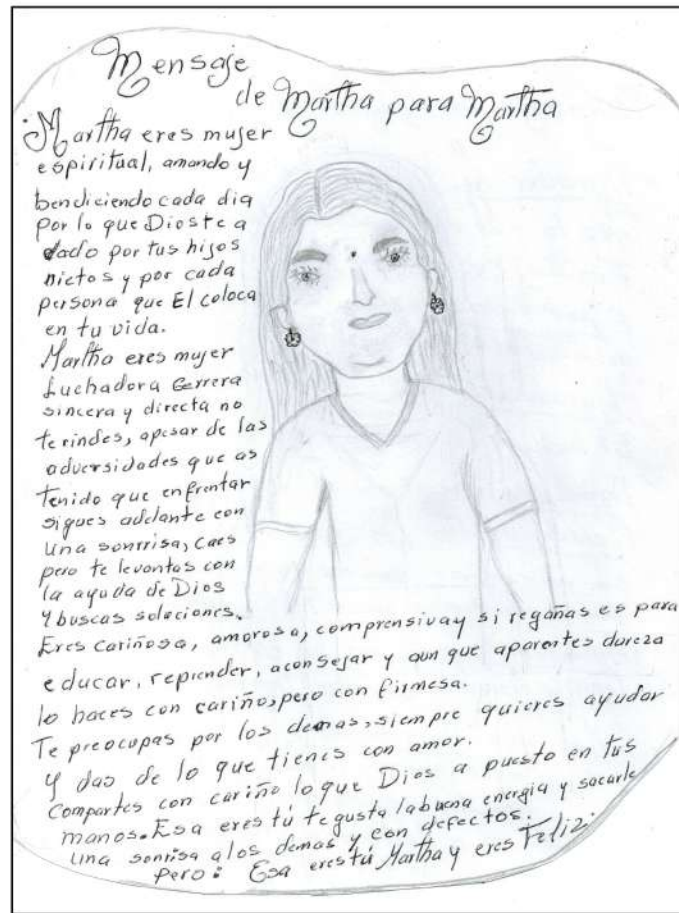 Mensaje
de Martha para Martha
Martha eres mujer
espiritual, amando y
bendiciendo cada dia
por lo que Dios te a
dado por tus hijos
nietos y por cada
persona que El coloca
en tu vida.
Martha eres mujer
Luchadora Gerrera
sincera y directa no
te rindes, apesar de las
adversidades que as
tenido que enfrentar
sigues adelante con
una sonrrisa, caes
pero te levantas con
la ayuda de Dios
y buscas soluciones.
Eres cariñosa, amorosa, comprensiva y si regañas es para
educar, reprender, aconsejar y aun que aparentes dureza
lo haces con cariño, pero con firmesa.
Te preocupas por los demas, siempre quieres ayudar
y das de lo que tienes con amor.
Compartes con cariño lo que Dios a puesto en tus
manos. Esa eres tú te gusta la buena energia y sacarle
una sonrisa a los demas y con defectos.
Pero: Esa eres tú Martha y eres Feliz.